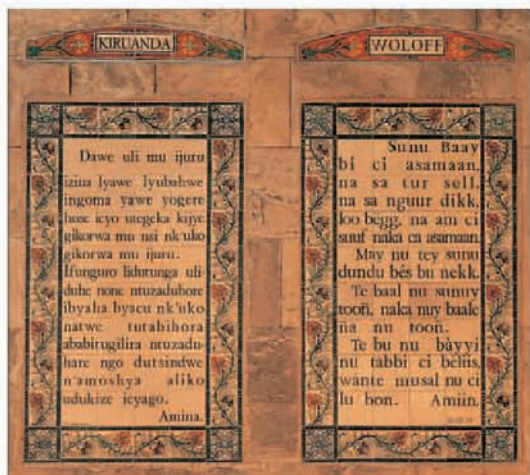 KIRUANDA
Dawe uli mu ijuru
izina lyawe lyubahwe
ingoma yawe yogere
hose icyo utegeka kijye
gikorwa mu nsi nk'uko
gikorwa mu ijuru.
Ifunguro lidutunga uli
duhe none ntuzaduhore
ibyaha byacu nk'uko
natwe tutabihora
ababirugilira ntuzadu-
hare ngo dutsindwe
n'amoshya aliko
udukize icyago.
Amina.
WOLOFF
Sunu Baay
bi ci asamaan,
na sa tur sell,
na sa nguur dikk,
loo begg, na am ci
suuf naka ca asamaan.
May nu tey sunu
dundu bés bu nekk.
Te baal nu sunuy
tooñ, naka nuy baale
ña nu tooñ.
Te bu nu bàyyi
nu tabbi ci beliis,
wànte musal nu ci
lu bon. Amiin.